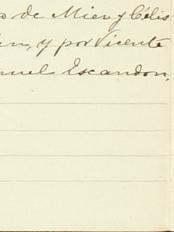 s de Mier y Célis
en, y por Vicente
nuel Escandon.